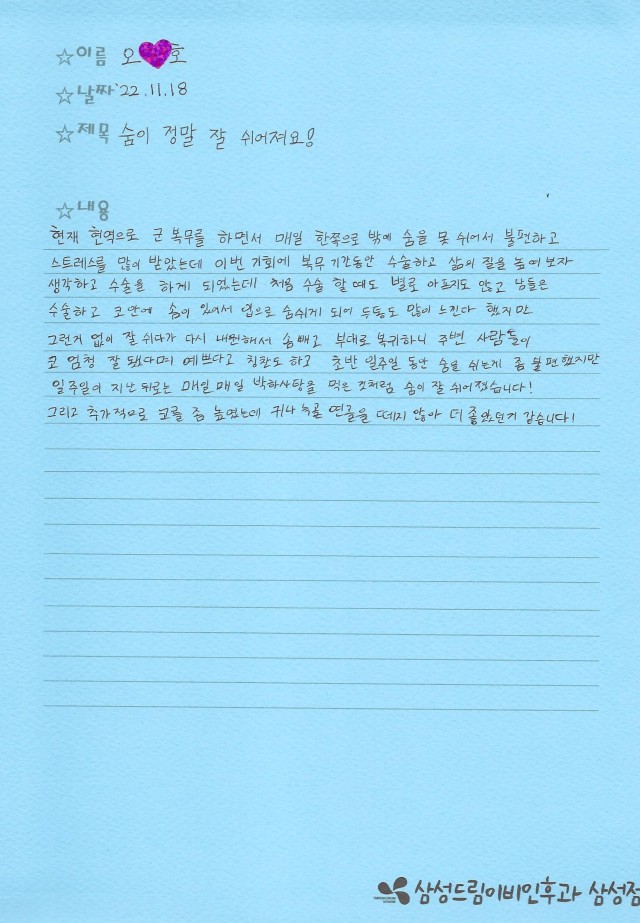 ☆이름 오♥호
☆날짜 '22.11.18
☆제목 숨이 정말 잘 쉬어져요!
☆내용
현재 현역으로 군 복무를 하면서 매일 한쪽으로 밖에 숨을 못 쉬어서 불편하고
스트레스를 많이 받았는데 이번 기회에 복무 기간동안 수술하고 삶의 질을 높여보자
생각하고 수술을 하게 되었는데 처음 수술 할 때도 별로 아프지도 않고 남들은
수술하고 코 안에 솜이 있어서 입으로 숨쉬게 되어 두통도 많이 느낀다 했지만
그런거 없이 잘 쉬다가 다시 내원해서 솜 빼고 부대로 복귀하니 주변 사람들이
코 엄청 잘 됐다며 예쁘다고 칭찬도 하고 초반 일주일 동안 숨을 쉬는게 좀 불편했지만
일주일이 지난 뒤로는 매일매일 박하사탕을 먹은 것처럼 숨이 잘 쉬어졌습니다!
그리고 추가적으로 코를 좀 높였는데 귀나 늑골 연골을 떼지 않아 더 좋았던거 같습니다!
삼성드림이비인후과 삼성점